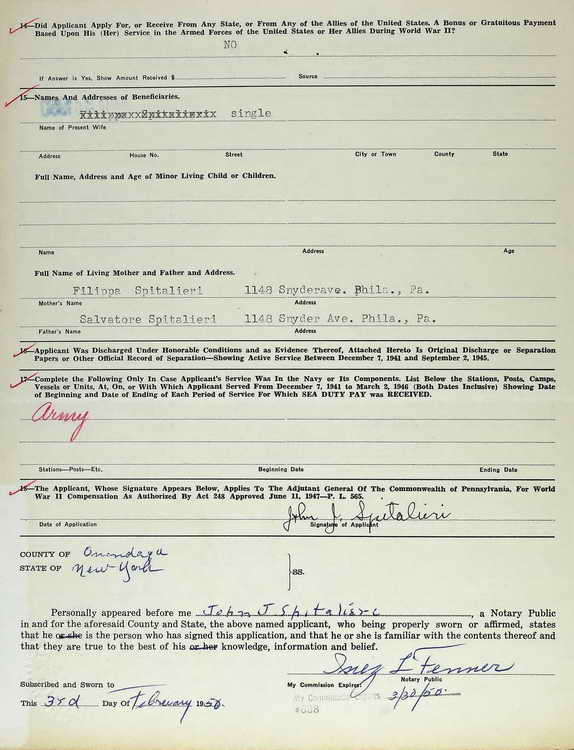 14—Did Applicant Apply For, or Receive From Any State, or From Any of the Allies of the United States, A Bonus or Gratuitous Payment
Based Upon His (Her) Service in the Armed Forces of the United States or Her Allies During World War II?
NO
If Answer is Yes, Show Amount Received $ Source
15—Names And Addresses of Beneficiaries.
Filippa Spitalieri single
Name of Present Wife
Address House No. Street City or Town County State
Full Name, Address and Age of Minor Living Child or Children.
Name Address Age
Full Name of Living Mother and Father and Address.
Filippa Spitalieri 1148 Snyderave. Phila., Pa.
Mother's Name Address
Salvatore Spitalieri 1148 Snyder Ave. Phila., Pa.
Father's Name Address
16—Applicant Was Discharged Under Honorable Conditions and as Evidence Thereof, Attached Hereto Is Original Discharge or Separation
Papers or Other Official Record of Separation—Showing Active Service Between December 7, 1941 and September 2, 1945.
17—Complete the Following Only In Case Applicant's Service Was In the Navy or Its Components. List Below the Stations, Posts, Camps,
Vessels or Units, At, On, or With Which Applicant Served From December 7, 1941 to March 2, 1946 (Both Dates Inclusive) Showing Date
of Beginning and Date of Ending of Each Period of Service For Which SEA DUTY PAY was RECEIVED.
Army
Stations—Posts—Etc. Beginning Date Ending Date
18—The Applicant, Whose Signature Appears Below, Applies To The Adjutant General Of The Commonwealth of Pennsylvania, For World
War II Compensation As Authorized By Act 248 Approved June 11, 1947—P. L. 565.
John J. Spitalieri
Date of Application Signature of Applicant
COUNTY OF Onondaga
STATE OF New York
}ss.
Personally appeared before me John J Spitalieri, a Notary Public
in and for the aforesaid County and State, the above named applicant, who being properly sworn or affirmed, states
that he or she is the person who has signed this application, and that he or she is familiar with the contents thereof and
that they are true to the best of his or her knowledge, information and belief.
Inez L Fenner
Subscribed and Sworn to Notary Public
My Commission Expires 3/30/50
This 3rd Day Of February 1950.
My Commission